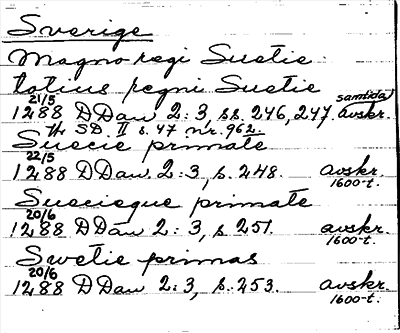 Sverige
Magno regi Suetie
totius regni Suetie
samtida
21/5
1288 DDan 2:3, ss. 246, 247. avskr.
tr. SD. II s. 47 nr. 962.
Suecie primate
22/5
1288 DDan. 2:3, s. 248. avskr.
1600-t.
Suecieque primate
20/6
1288 DDan 2:3, s. 251. avskr.
1600-t.
Swetie primas
20/6
1288 DDan 2:3, s. 253. avskr.
1600-t.